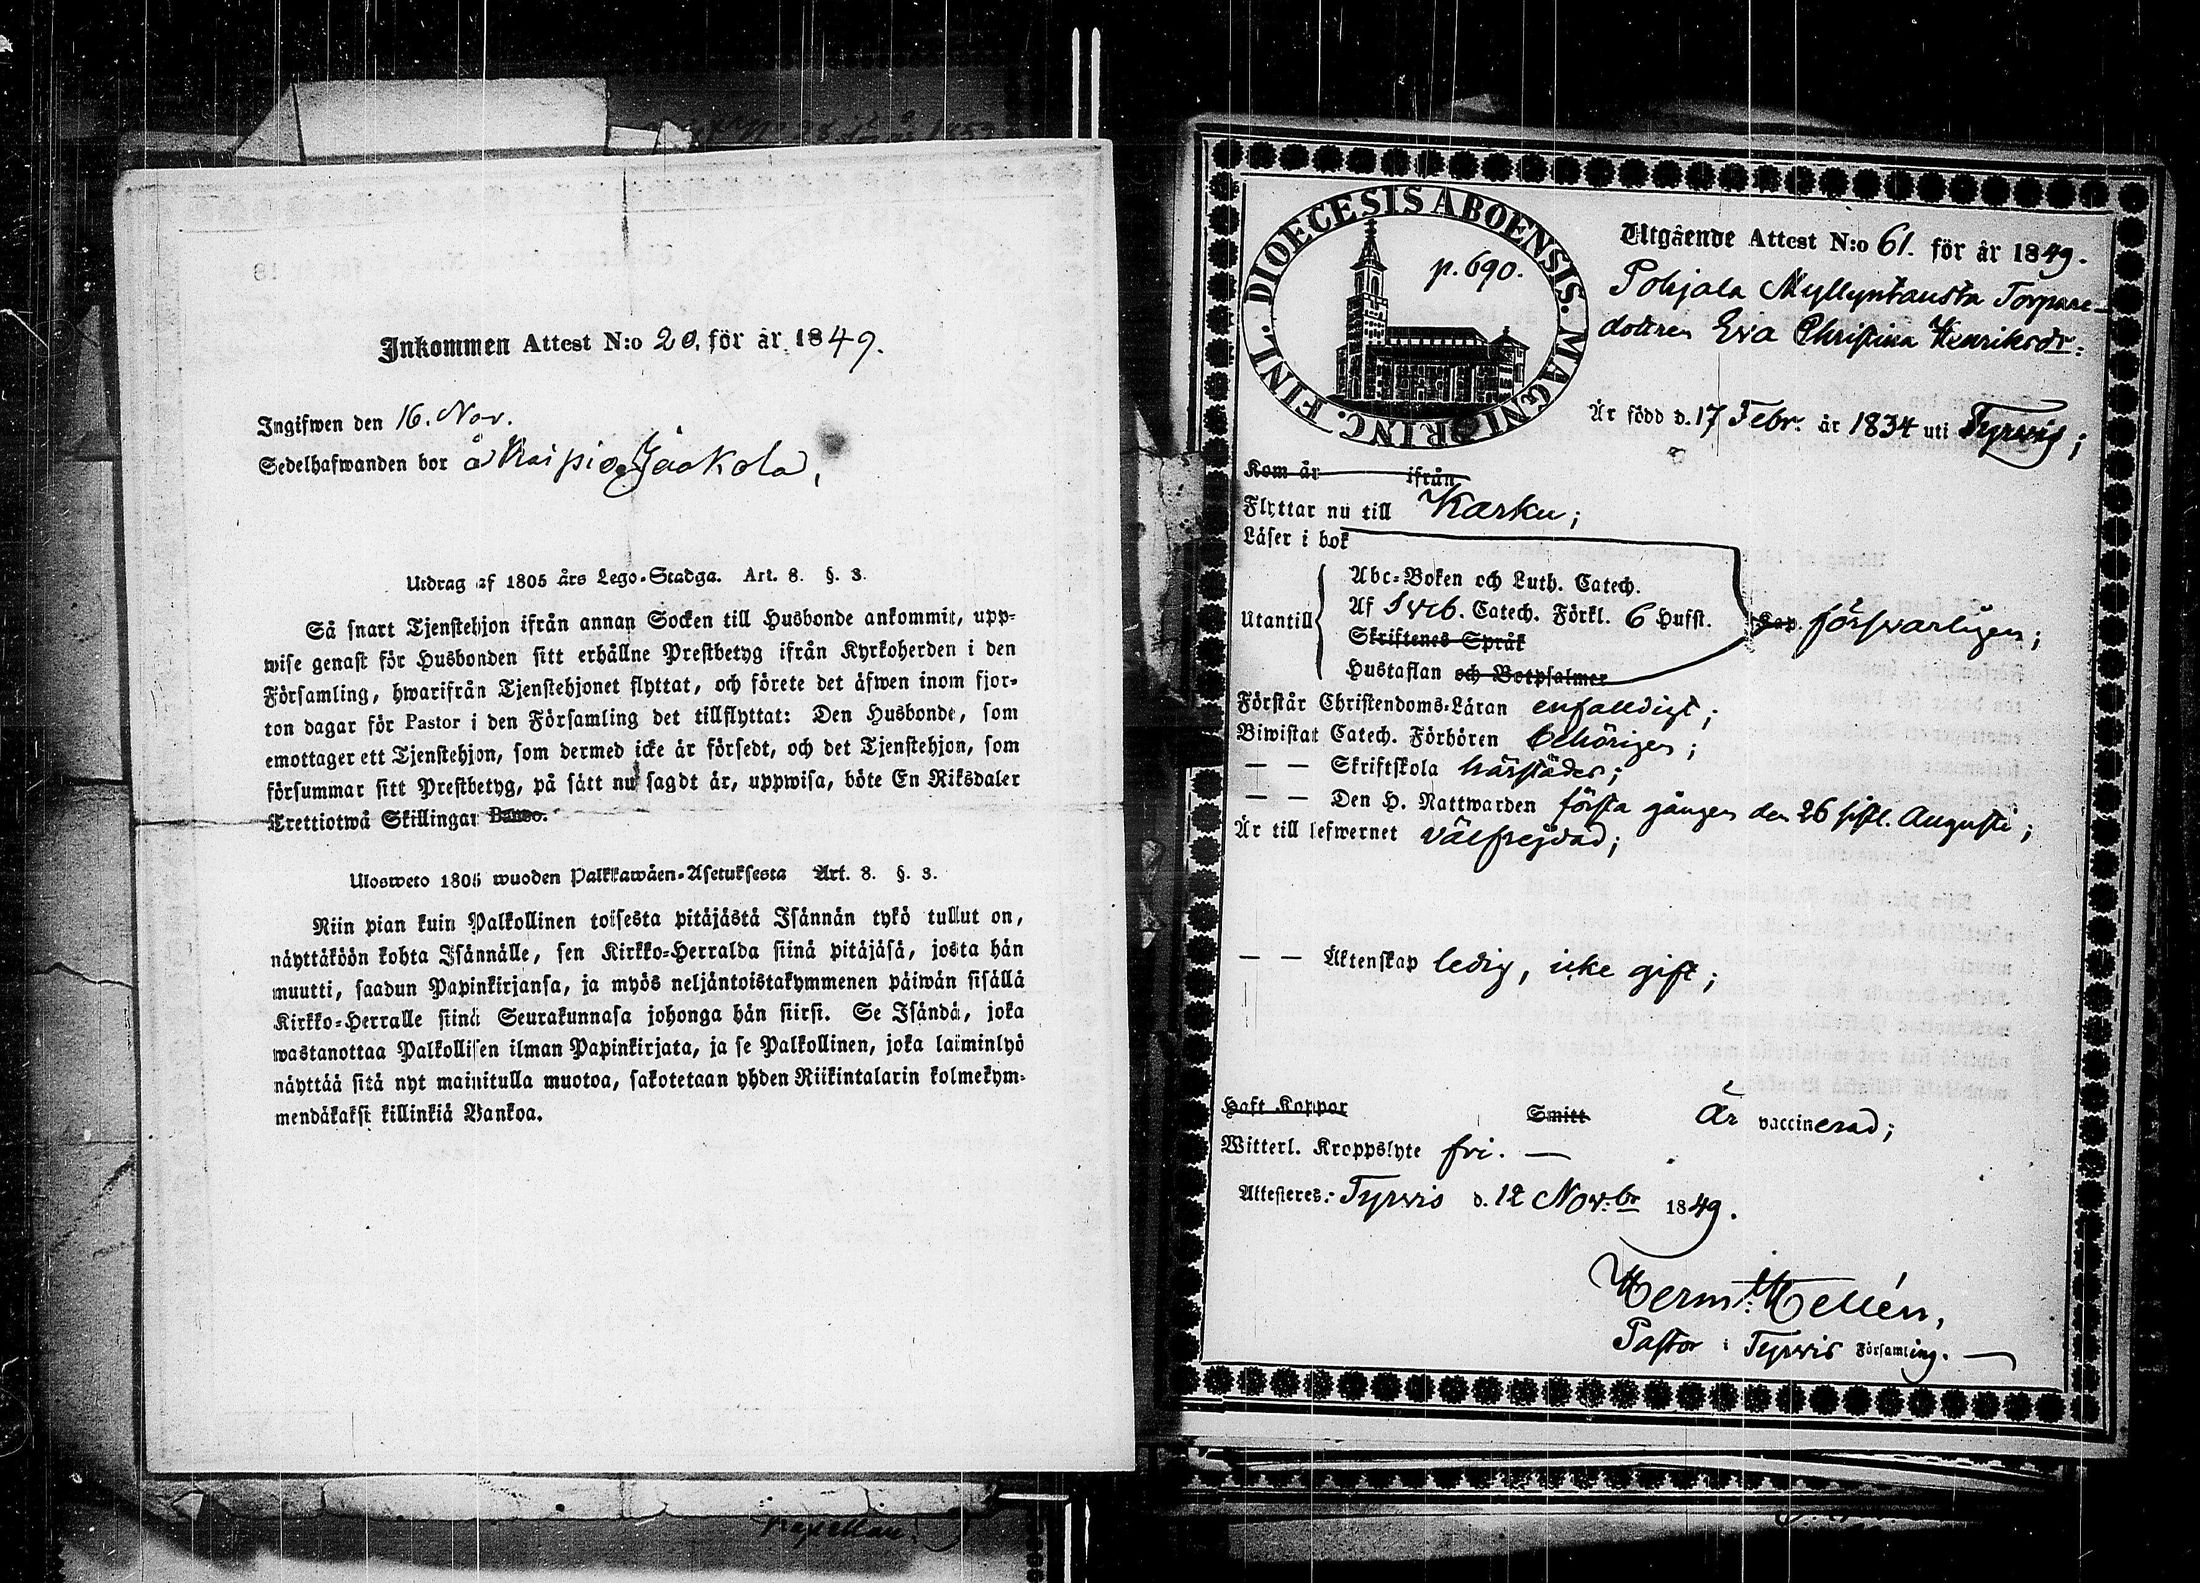 Inkommen Attest N:o 20. för år 1849.
Ingifwen den 16. Nov.
Sedelhafwanden bor å Kaipio Jaakola,
Utdrag af 1805 års Lego-Stadga. Art. 8. §. 3.
Så snart Tjenstehjon ifrån annan Socken till Husbonde ankommit, upp-
wise genast för Husbonden sitt erhållne Prestbetyg ifrån Kyrkoherden i den
Församling, hwarifrån Tjenstehjonet flyttat, och förete det äfwen inom fjor-
ton dagar för Pastor i den Församling det tillflyttat: Den Husbonde, som
emottager ett Tjenstehjon, som dermed icke är försedt, och det Tjenstehjon, som
försummar sitt Prestbetyg, på sätt nu sagdt är, uppwisa, böte En Riksdaler
Trettiotwå Skillingar Banco.
Ulosweto 1805 wuoden Palkkawäen-Asetuksesta Art. 8. §. 3.
Niin pian kuin Palkollinen toisesta pitäjästä Isännän tykö tullut on,
näyttäköön kohta Isännälle, sen Kirkko-Herralda siinä pitäjäsä, josta hän
muutti, saadun Papinkirjansa, ja myös neljäntoistakymmenen päiwän sisällä
Kirkko-Herralle siinä Seurakunnasa johonga hän siirsi. Se Isändä, joka
wastanottaa Palkollisen ilman Papinkirjata, ja se Palkollinen, joka laiminlyö
näyttää sitä nyt mainitulla muotoa, sakotetaan yhden Riikintalarin kolmekym-
mendäkaksi killinkiä Bankoa.
DIOECESIS ABOENSIS. MAGNI PRINC. FINL.
p. 690.
Utgående Attest N:o 61. för år 1849.
Pohjala Myllyntausta Torpare-
dottren Eva Christina Henriksdr:
Är född d. 17 Febr. år 1834 uti Tyrwis;
Kom år ifrån
Flyttar nu till Karku;
Läser i bok
Abc-Boken och Luth. Catech.
Utantill Af Sveb. Catech. Förkl. 6 Hufst. Cap. försvarligen;
Skriftenes Språk
Hustaflan och Botpsalmer
Förstår Christendoms-Läran enfalldigt;
Biwistat Catech. Förhören behörigen;
— — Skriftskola härstädes;
— — Den H. Nattwarden första gången den 26 sistl. Augusti;
Är till lefwernet välfrejdad;
— — Äktenskap ledig, icke gift;
Haft Koppor Smitt Är vaccinerad;
Witterl. Kroppslyte fri. —
Attesteres: Tyrvis d. 12 Nov:br 1849.
Herm: Hellén,
Pastor i Tyrvis Församling. —
Kapellan.